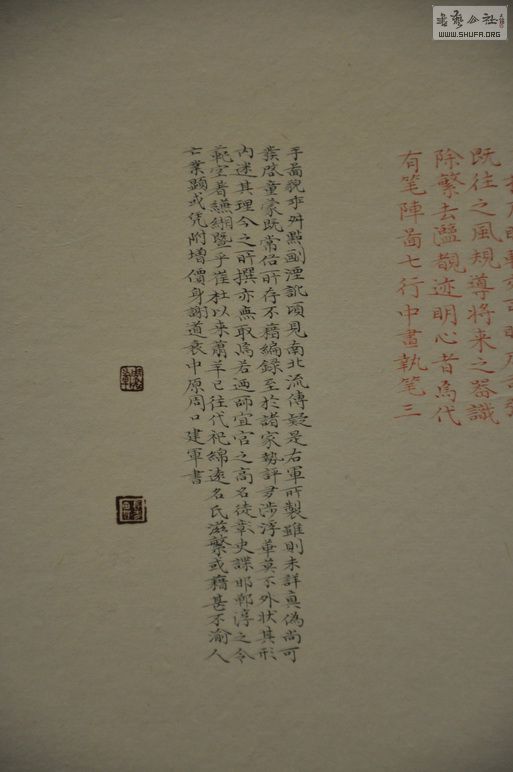 既往之風規導将来之器識
除繁去濫覩迹明心者焉代
有笔陣啚七行中畫執笔三
手啚貌乖舛點畫湮訛頃見南北流傳疑是右軍所製雖則未詳真偽尚可
發啓童蒙既常俗所存不藉編録至於諸家勢評多涉浮華莫不外狀其形
内迷其理今之所撰亦無取焉若迺師宜官之高名徒章史諜邯鄲淳之令
範空著縑緗暨乎崔杜以来蕭羊已往代祀綿遠名氏滋繁或藉甚不渝人
亡業顯或凭附增價身謝道衰中原周口建軍書
書藝公社
WWW.SHUFA.ORG